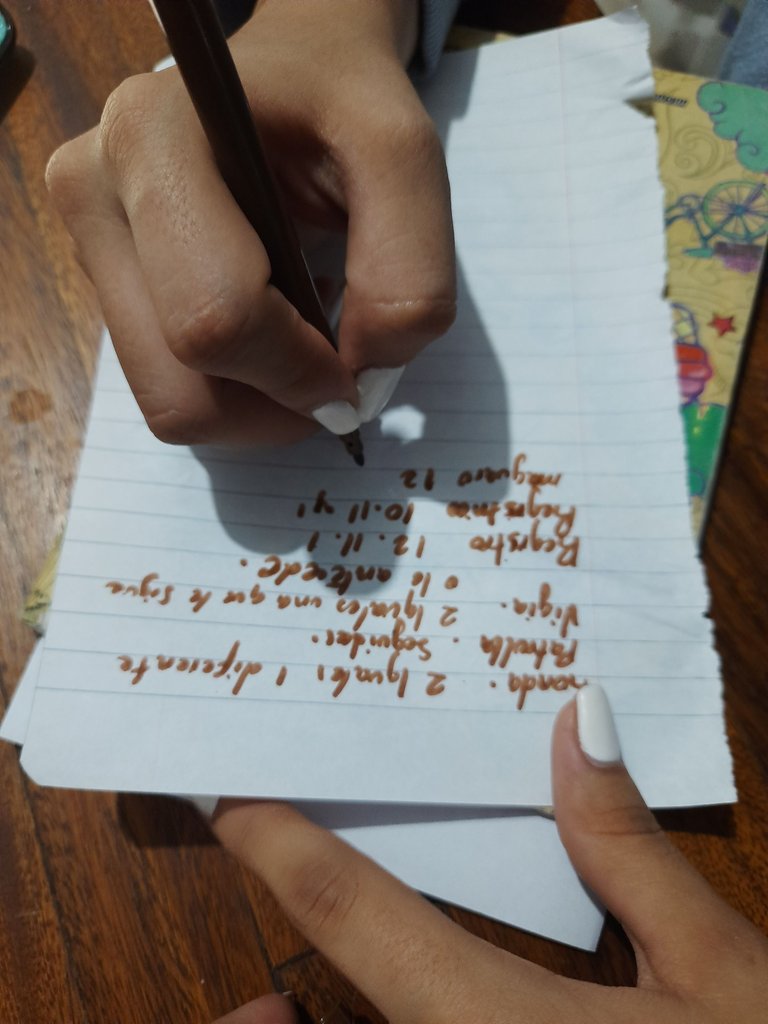 Ronda. 2 Iguales 1 diferente
Patrulla. Seguidas.
Vigia. 2 Iguales una que le sigua
o le antecede.
Registro 12.11.1
Registrico 10.11 y 1
maguaro 12